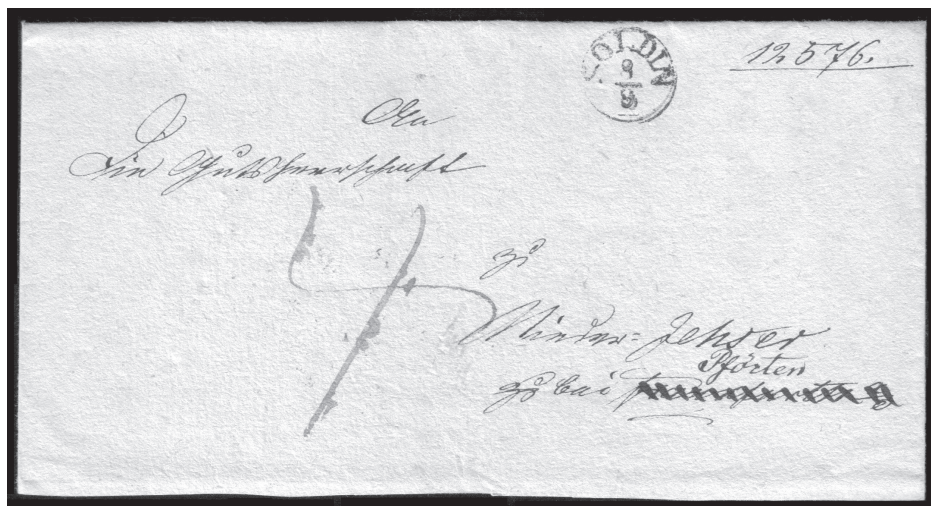 SOLDIN
8
8
12576.
An
Die Gutsherrschaft
4
zu
Nieder-Jehser
Pförten
zu bei